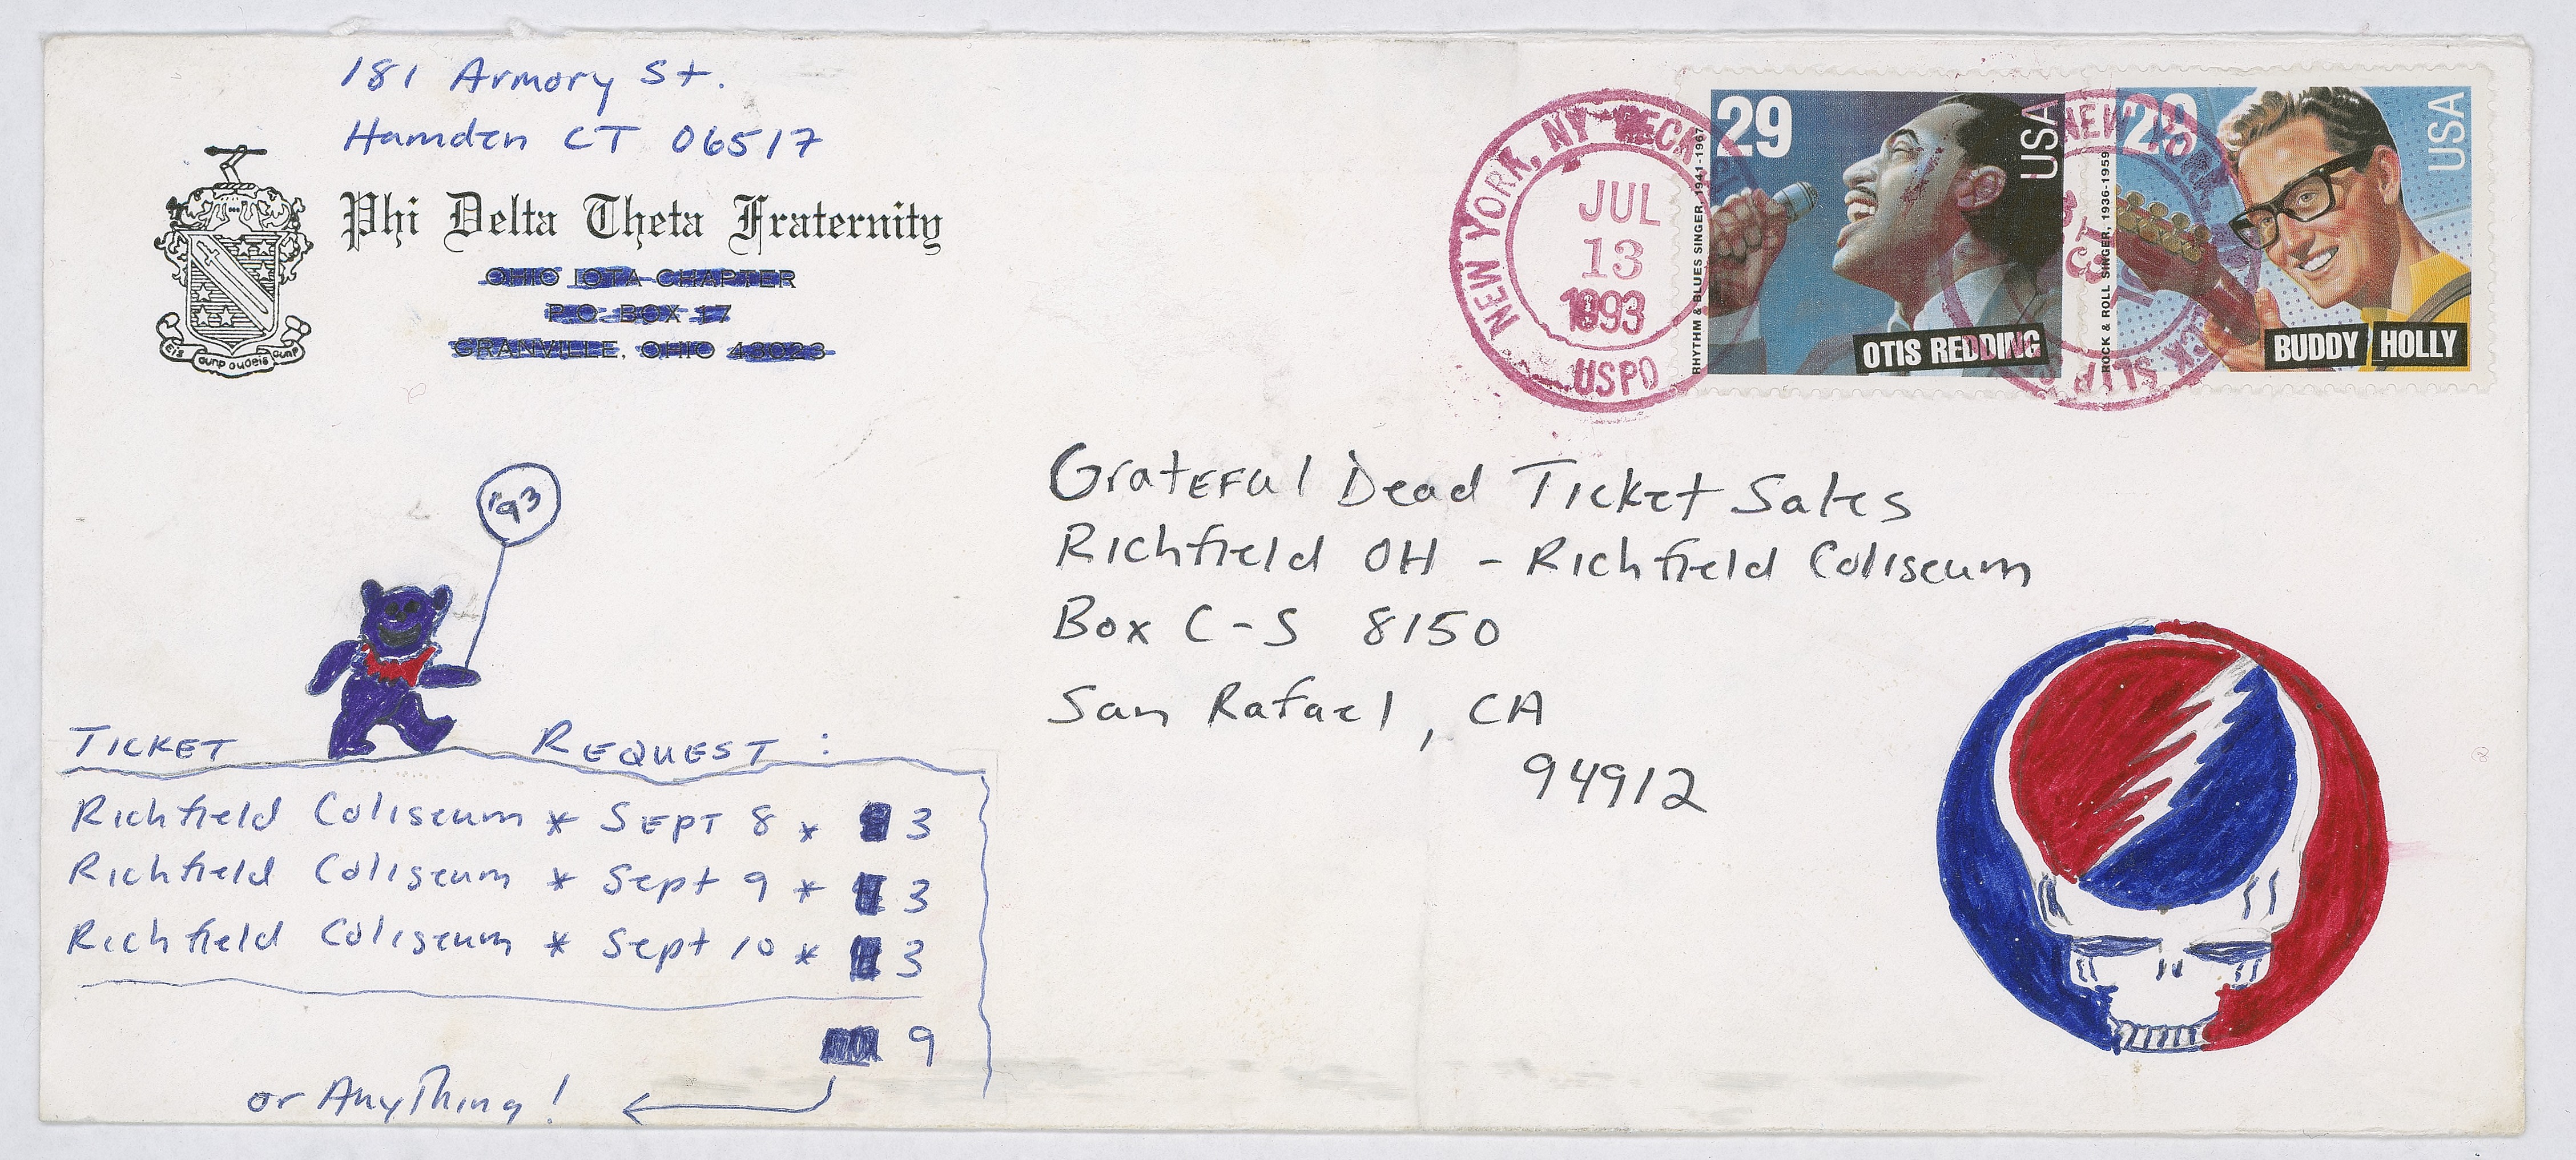 181 Armory St.
Hamden CT 06517
Phi Delta Theta Fraternity
OHIO IOTA CHAPTER
P O BOX 17
GRANVILLE, OHIO 43023
NEW YORK, NY
JUL
13
1993
USPO
29
USA
RHYTHM & BLUES SINGER, 1941-1967
OTIS REDDING
29
USA
ROCK & ROLL SINGER, 1936-1959
BUDDY HOLLY
GratEFul Dead Ticket Sales
Richfield OH - Richfield Coliseum
Box C-S 8150
San Rafael, CA
94912
'93
TICKET REQUEST:
Richfield Coliseum * SEPT 8 * 3
Richfield Coliseum * Sept 9 * 3
Richfield Coliseum * Sept 10 * 3
9
or AnyThing!